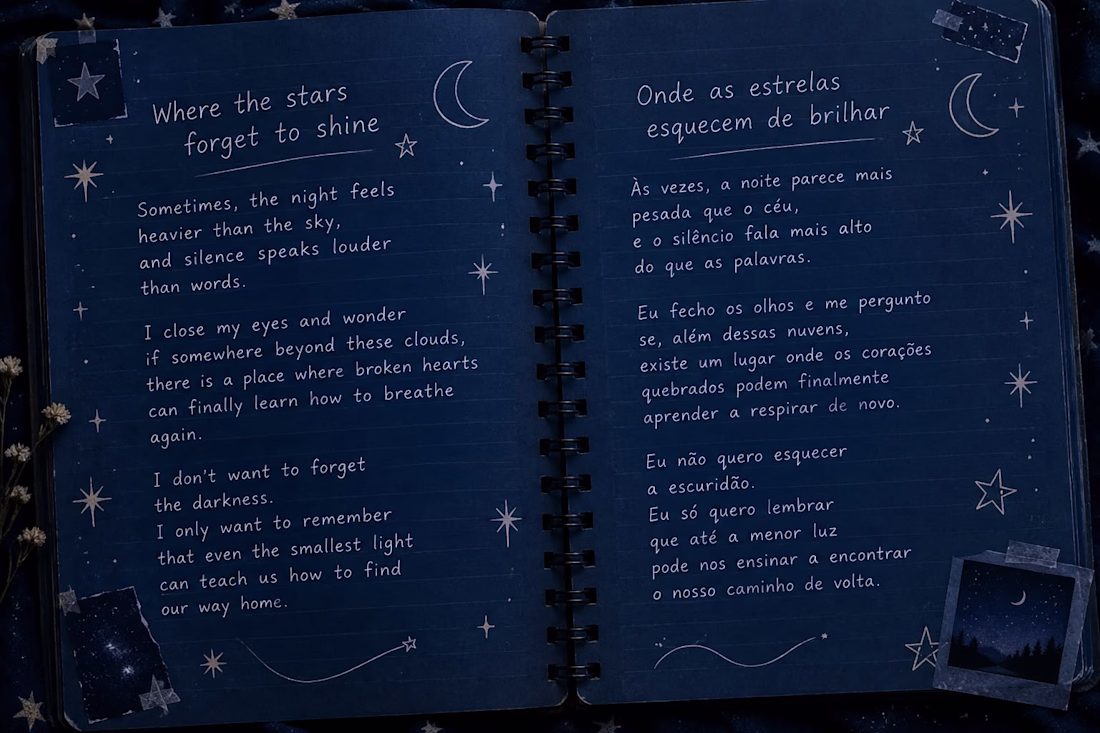 Where the stars
forget to shine
Sometimes, the night feels
heavier than the sky,
and silence speaks louder
than words.
I close my eyes and wonder
if somewhere beyond these clouds,
there is a place where broken hearts
can finally learn how to breathe
again.
I don't want to forget
the darkness.
I only want to remember
that even the smallest light
can teach us how to find
our way home.
Onde as estrelas
esquecem de brilhar
Às vezes, a noite parece mais
pesada que o céu,
e o silêncio fala mais alto
do que as palavras.
Eu fecho os olhos e me pergunto
se, além dessas nuvens,
existe um lugar onde os corações
quebrados podem finalmente
aprender a respirar de novo.
Eu não quero esquecer
a escuridão.
Eu só quero lembrar
que até a menor luz
pode nos ensinar a encontrar
o nosso caminho de volta.